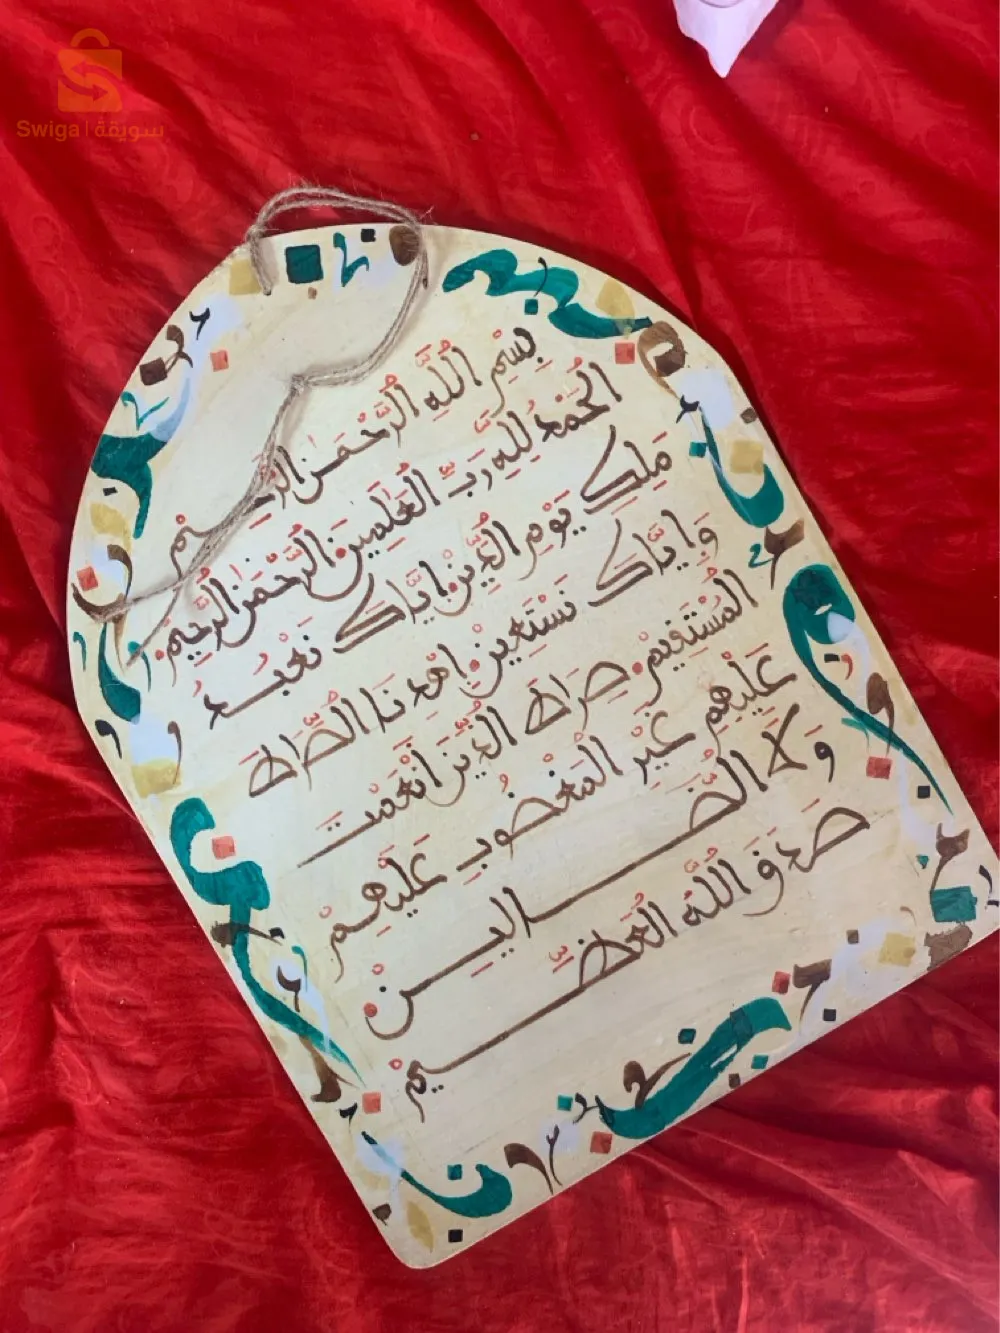 Swiga | سويقة
بِسْمِ اللَّهِ الرَّحْمَٰنِ الرَّحِيمْ
الْحَمْدُ لِلَّهِ رَبِّ الْعَٰلَمِينَ الرَّحْمَٰنِ الرَّحِيمِ
مَلِكِ يَوْمِ الدِّينِ إِيَّاكَ نَعْبُدُ
وَإِيَّاكَ نَسْتَعِينُ اِهْدِنَا الصِّرَاطَ
الْمُسْتَقِيمَ صِرَاطَ الَّذِينَ أَنْعَمْتَ
عَلَيْهِمْ غَيْرِ الْمَغْضُوبِ عَلَيْهِمْ
وَلَا الضَّالِّينَْ
صَدَقَ اللَّهُ الْعَظِيمْ